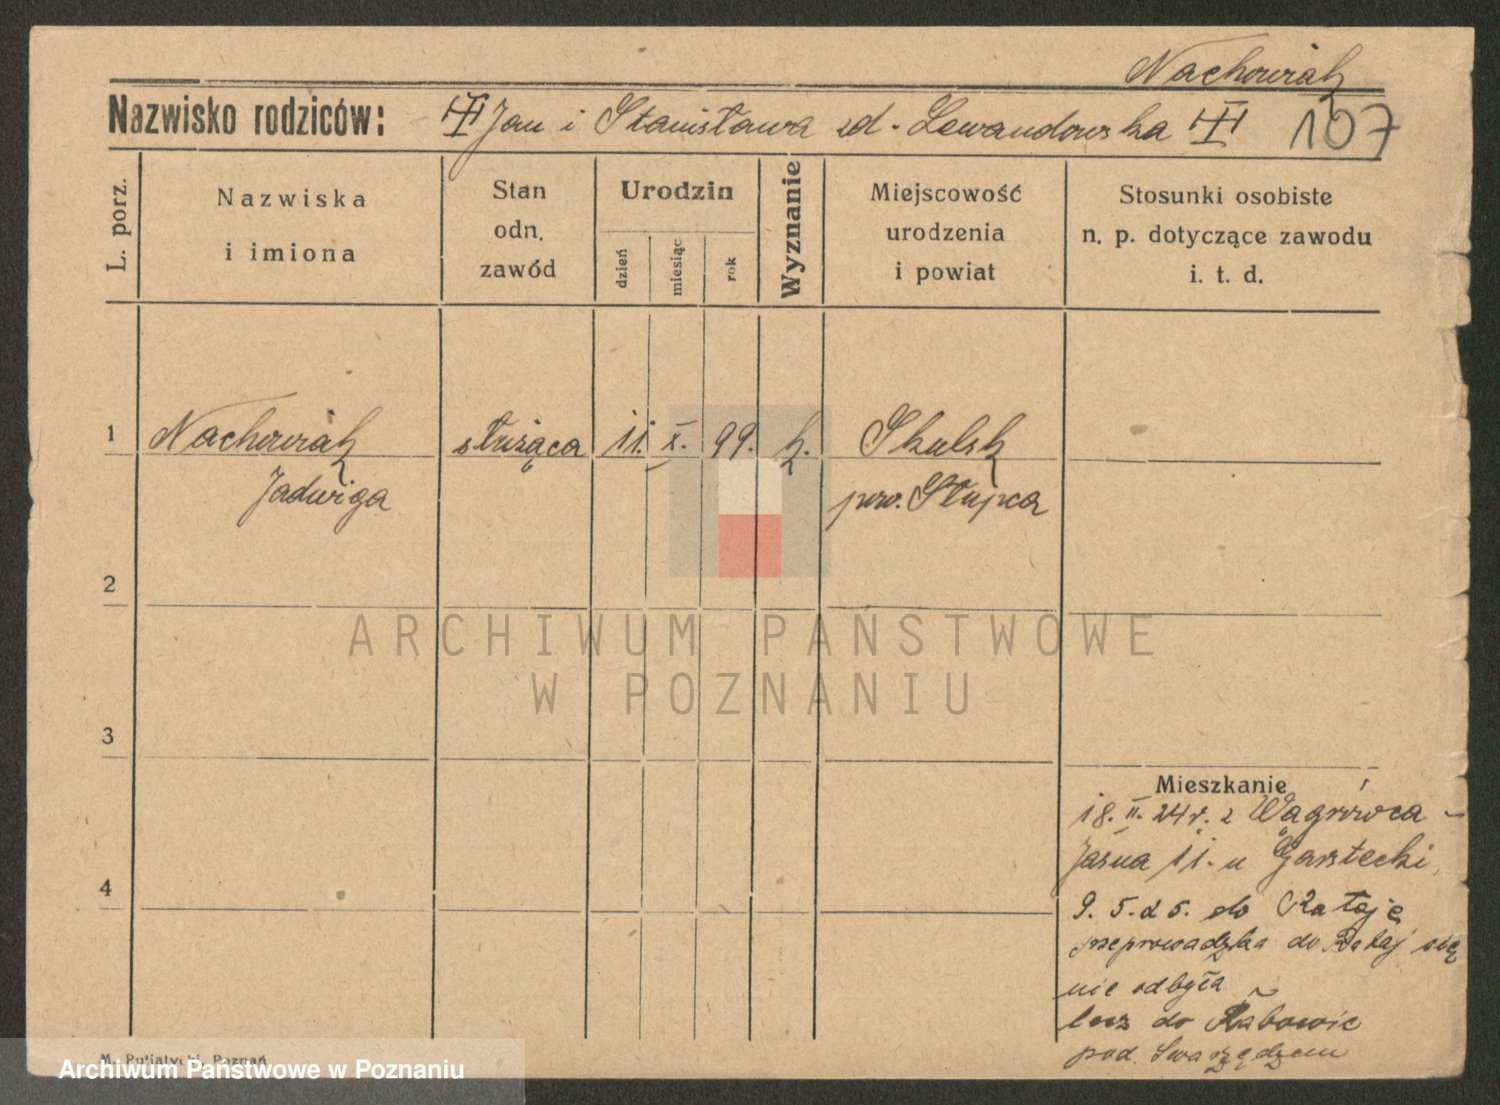 Nachowiak
Nazwisko rodziców: Jan i Stanisława zd. Lewandowska 107
L. porz.
Nazwiska
i imiona
Stan
odn.
zawód
Urodzin
dzień
miesiąc
rok
Wyznanie
Miejscowość
urodzenia
i powiat
Stosunki osobiste
n. p. dotyczące zawodu
i. t. d.
1 Nachowiak służąca 11. X. 99. k. Skulsk
Jadwiga pow. Słupca
2
ARCHIWUM PAŃSTWOWE
W POZNANIU
3
Mieszkanie
18. II. 24 r. z Wągrówca -
Jasna 11. u Garstecki
4
9. 5. 25. do Rataje
przeprowadzka do Rataj się
nie odbyła
lecz do Rabowic
pod Swarzędzem
M. Putiatycki, Poznań
Archiwum Państwowe w Poznaniu